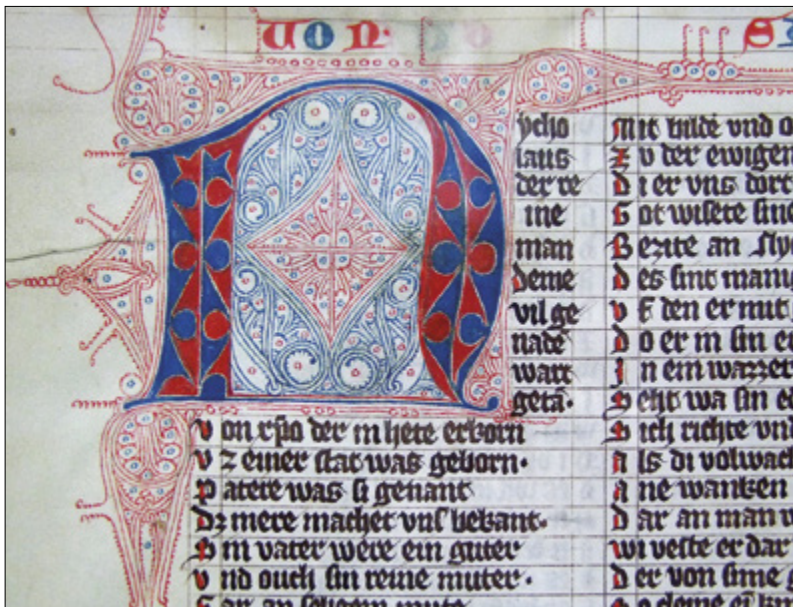 VON· S
Nycho
laus
der re
ine
man
deme
vil ge
nade
wart
geta·
von xpo der in hete erkorn
vz einer stat was geborn·
Patere was si genant
Dz mere machet vns bekant·
Sin vater were ein guter
vnd ouch sin reine muter·
an seligem mute
Mit bilde vnd
Zv der ewigen
Di er vns dort
Got wisete sine
Bezite an
Des sint
vf den er mit
Do er in sin
In ein wazzer
Seht wa sin
Sich richte vnd
Als di
Ane wanken
Dar an man
wi veste er dar
Der von sime
deme